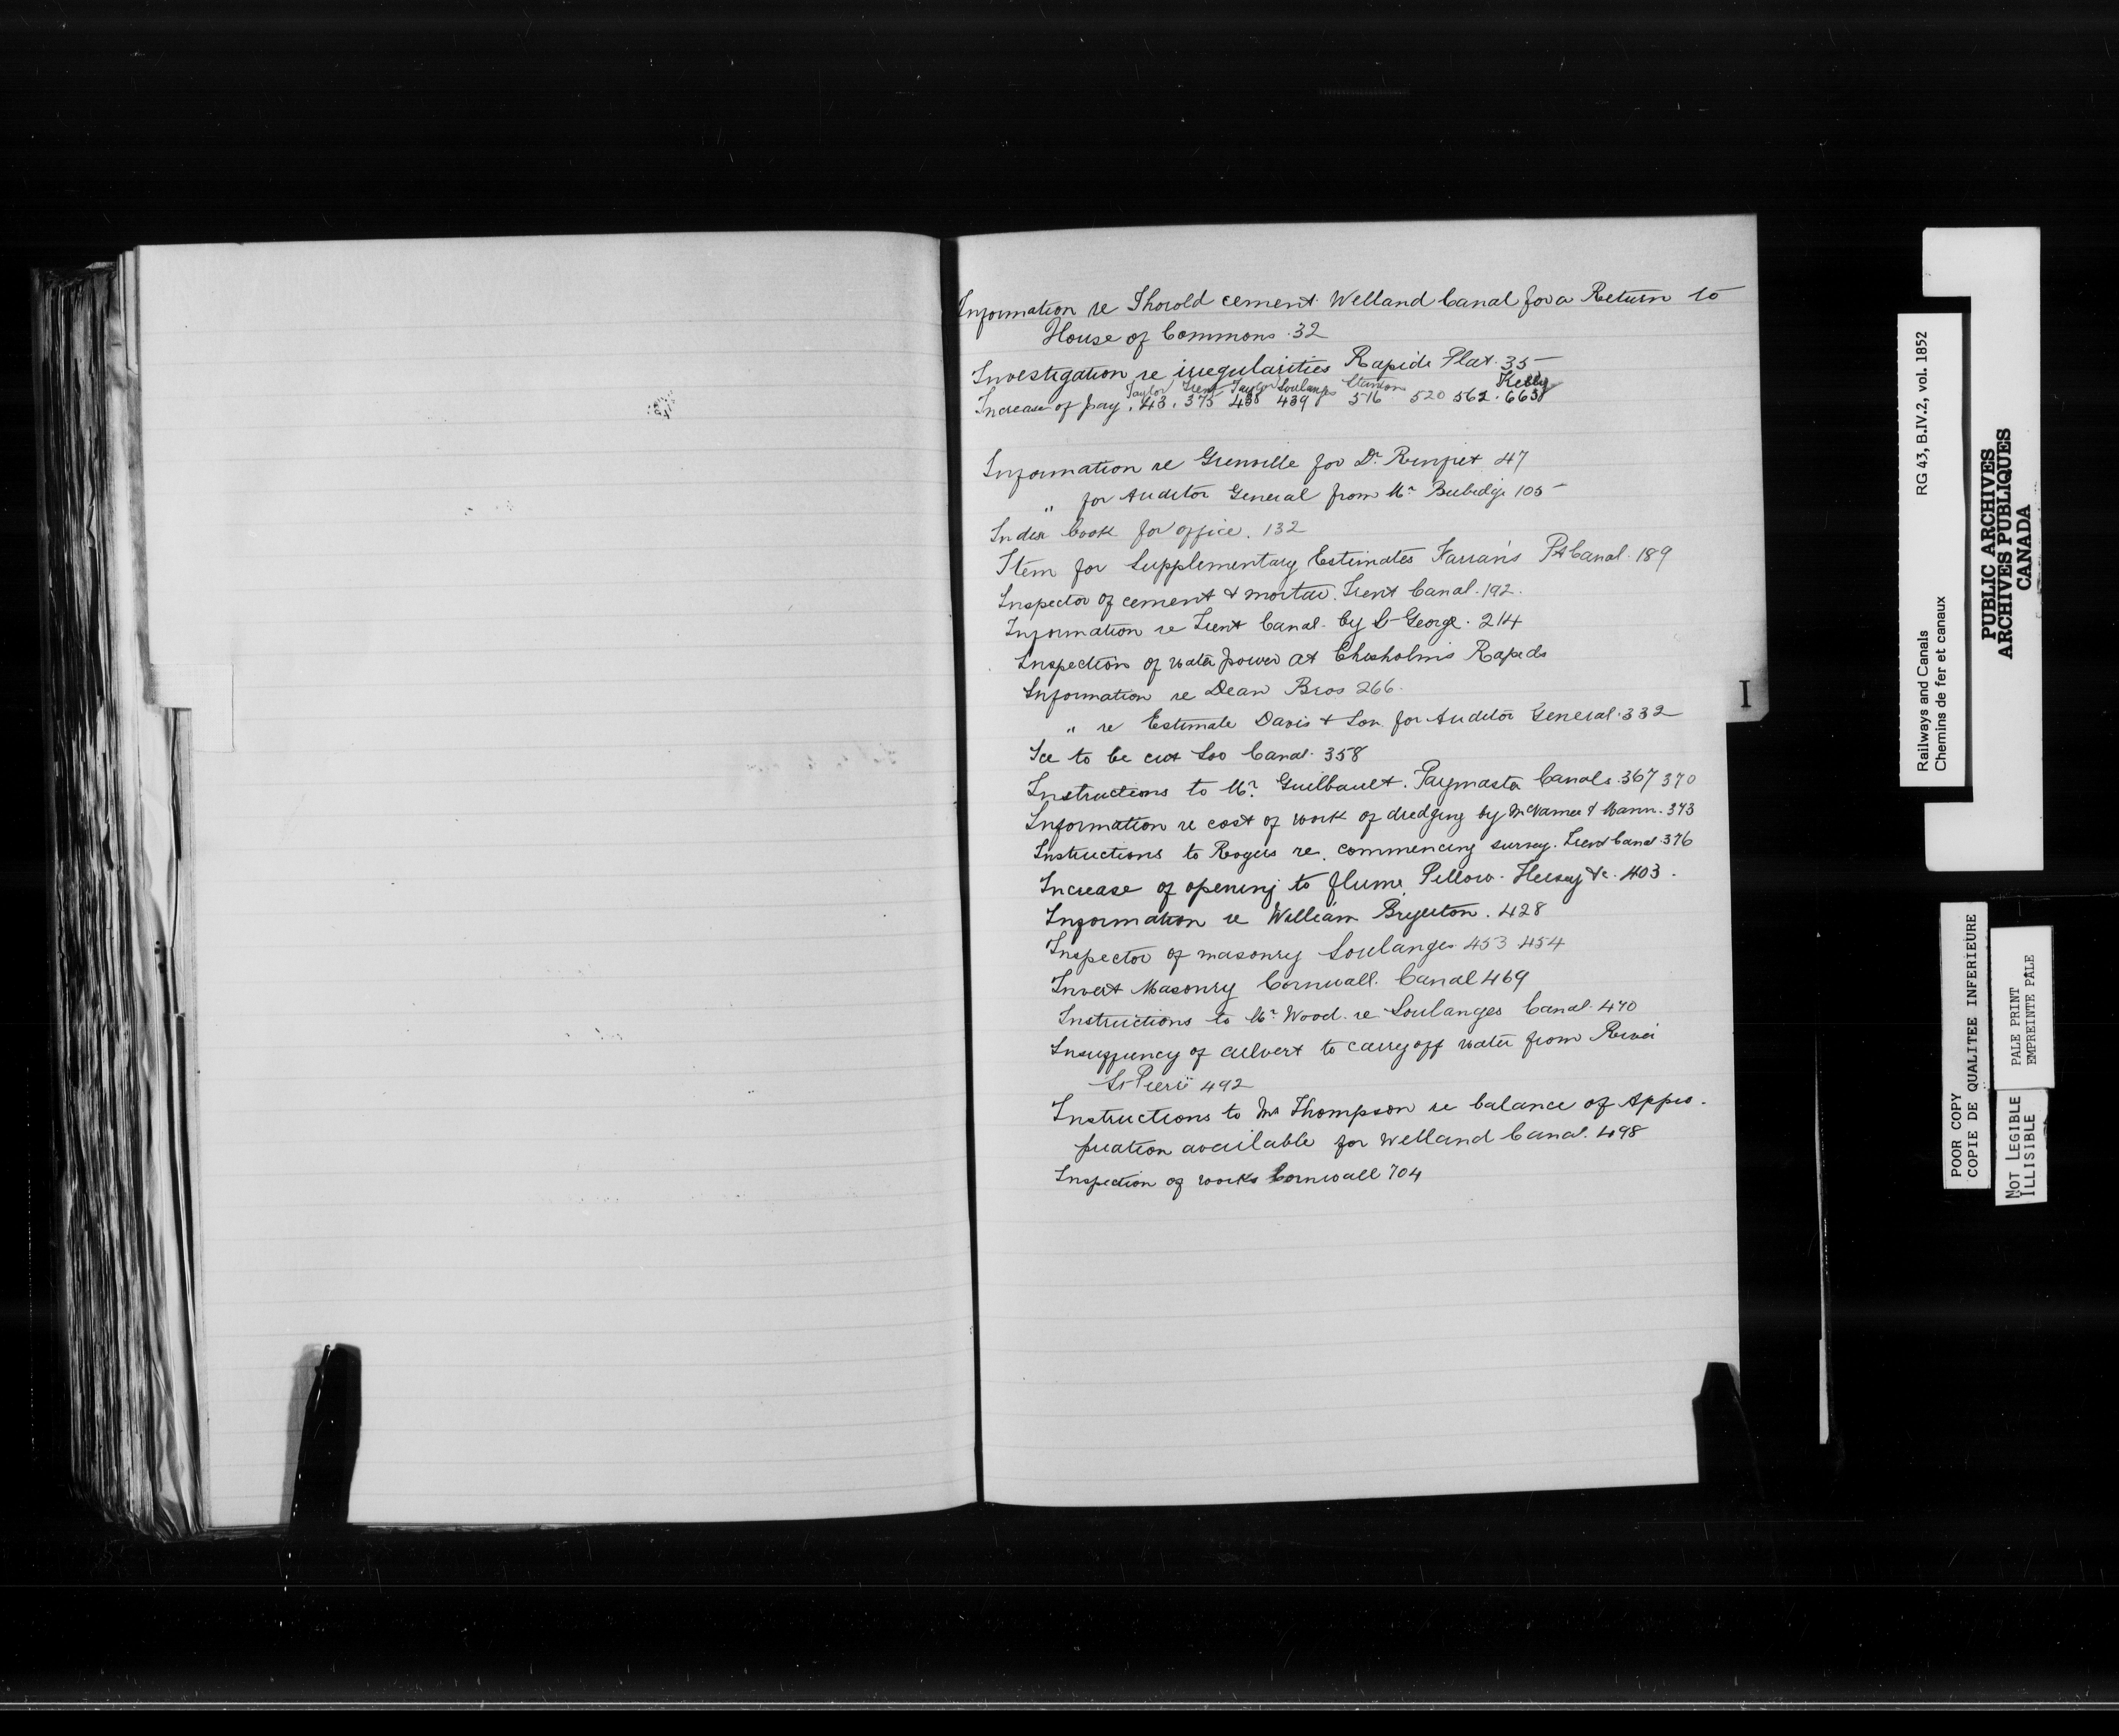 Information re Thorold cement Welland Canal for a Return to
House of Commons 32
Investigation re irregularities Rapide Plat. 35
Taylor Trent Taylor Soulanges Kelly
Increase of pay. 43. 375 438 439 516 520 562. 663
Information re Grenville for Dr. 47
" for Auditor General from Mr 105
Index book for office. 132
Item for Supplementary Estimates Farran's Pt Canal. 189
Inspector of cement & mortar. Trent Canal. 192.
Information re Trent Canal. by St George. 214
Inspection of water power at Chisholm's Rapids
Information re Dean Bros 266.
" re Estimate Davis & Son for Auditor General. 332
Ice to be cut Soo Canal. 358
Instructions to Mr. Guilbault. Paymaster Canals. 367 370
Information re cost of work of dredging by McNamee & Mann. 373
Instructions to Rogers re. commencing survey. Trent Canal 376
Increase of opening to flume. Pellow. Hersey &c. 403.
Information re William . 428
Inspector of masonry Soulanges 453 454
Invert Masonry Cornwall. Canal 469
Instructions to Mr Wood. re Soulanges Canal. 470
Insuffiency of culvert to carry off water from River
St Pierre 492
Instructions to Mr Thompson re balance of Appro-
priation available for Welland Canal. 498
Inspection of works Cornwall 704
I
Railways and Canals RG 43, B.IV.2, vol. 1852
Chemins de fer et canaux
PUBLIC ARCHIVES
ARCHIVES PUBLIQUES
CANADA
POOR COPY
COPIE DE QUALITEE INFERIEURE
PALE PRINT
EMPREINTE PÂLE
NOT LEGIBLE
ILLISIBLE